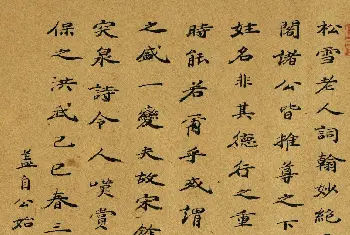 松雪老人詞翰妙絕
閣諸公皆推尊之下
姓名非其德行之重
時能若爾乎或謂
之盛一變夫故宋餘
突泉詩令人嘆賞
保之洪武己巳春三
蓋自公始